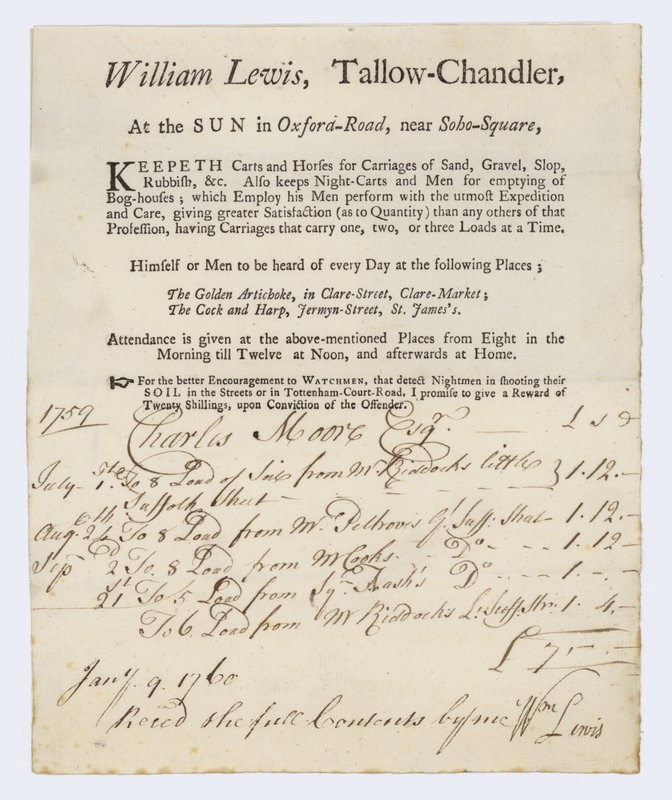 William Lewis, Tallow-Chandler,
At the SUN in Oxford-Road, near Soho-Square,
KEEPETH Carts and Horſes for Carriages of Sand, Gravel, Slop,
Rubbiſh, &c. Alſo keeps Night-Carts and Men for emptying of
Bog-houſes; which Employ his Men perform with the utmoſt Expedition
and Care, giving greater Satisfaction (as to Quantity) than any others of that
Profeſſion, having Carriages that carry one, two, or three Loads at a Time.
Himſelf or Men to be heard of every Day at the following Places;
The Golden Artichoke, in Clare-Street, Clare-Market;
The Cock and Harp, Jermyn-Street, St. James's.
Attendance is given at the above-mentioned Places from Eight in the
Morning till Twelve at Noon, and afterwards at Home.
☛ For the better Encouragement to WATCHMEN, that detect Nightmen in ſhooting their
SOIL in the Streets or in Tottenham-Court-Road, I promiſe to give a Reward of
Twenty Shillings, upon Conviction of the Offender.
1759 Charles Moore Esqr. — £ s d
July 1 To 8 Load of Soil from Mr Riddocks little } 1.12.—
Suffolk Street
Aug. 24 To 8 Load from Mr. Gt. Suff. Street 1.12.—
Sep 2 To 8 Load from Mr Cooks Do 1.12—
21 To 5 Load from Sqr. Nash's Do 1.—.—
To 6 Load from Mr Riddocks L. Suff. Str. 1.4.—
£ 7—.—
Jany. 9. 1760
Rece'd the full Contents by me Wm Lewis